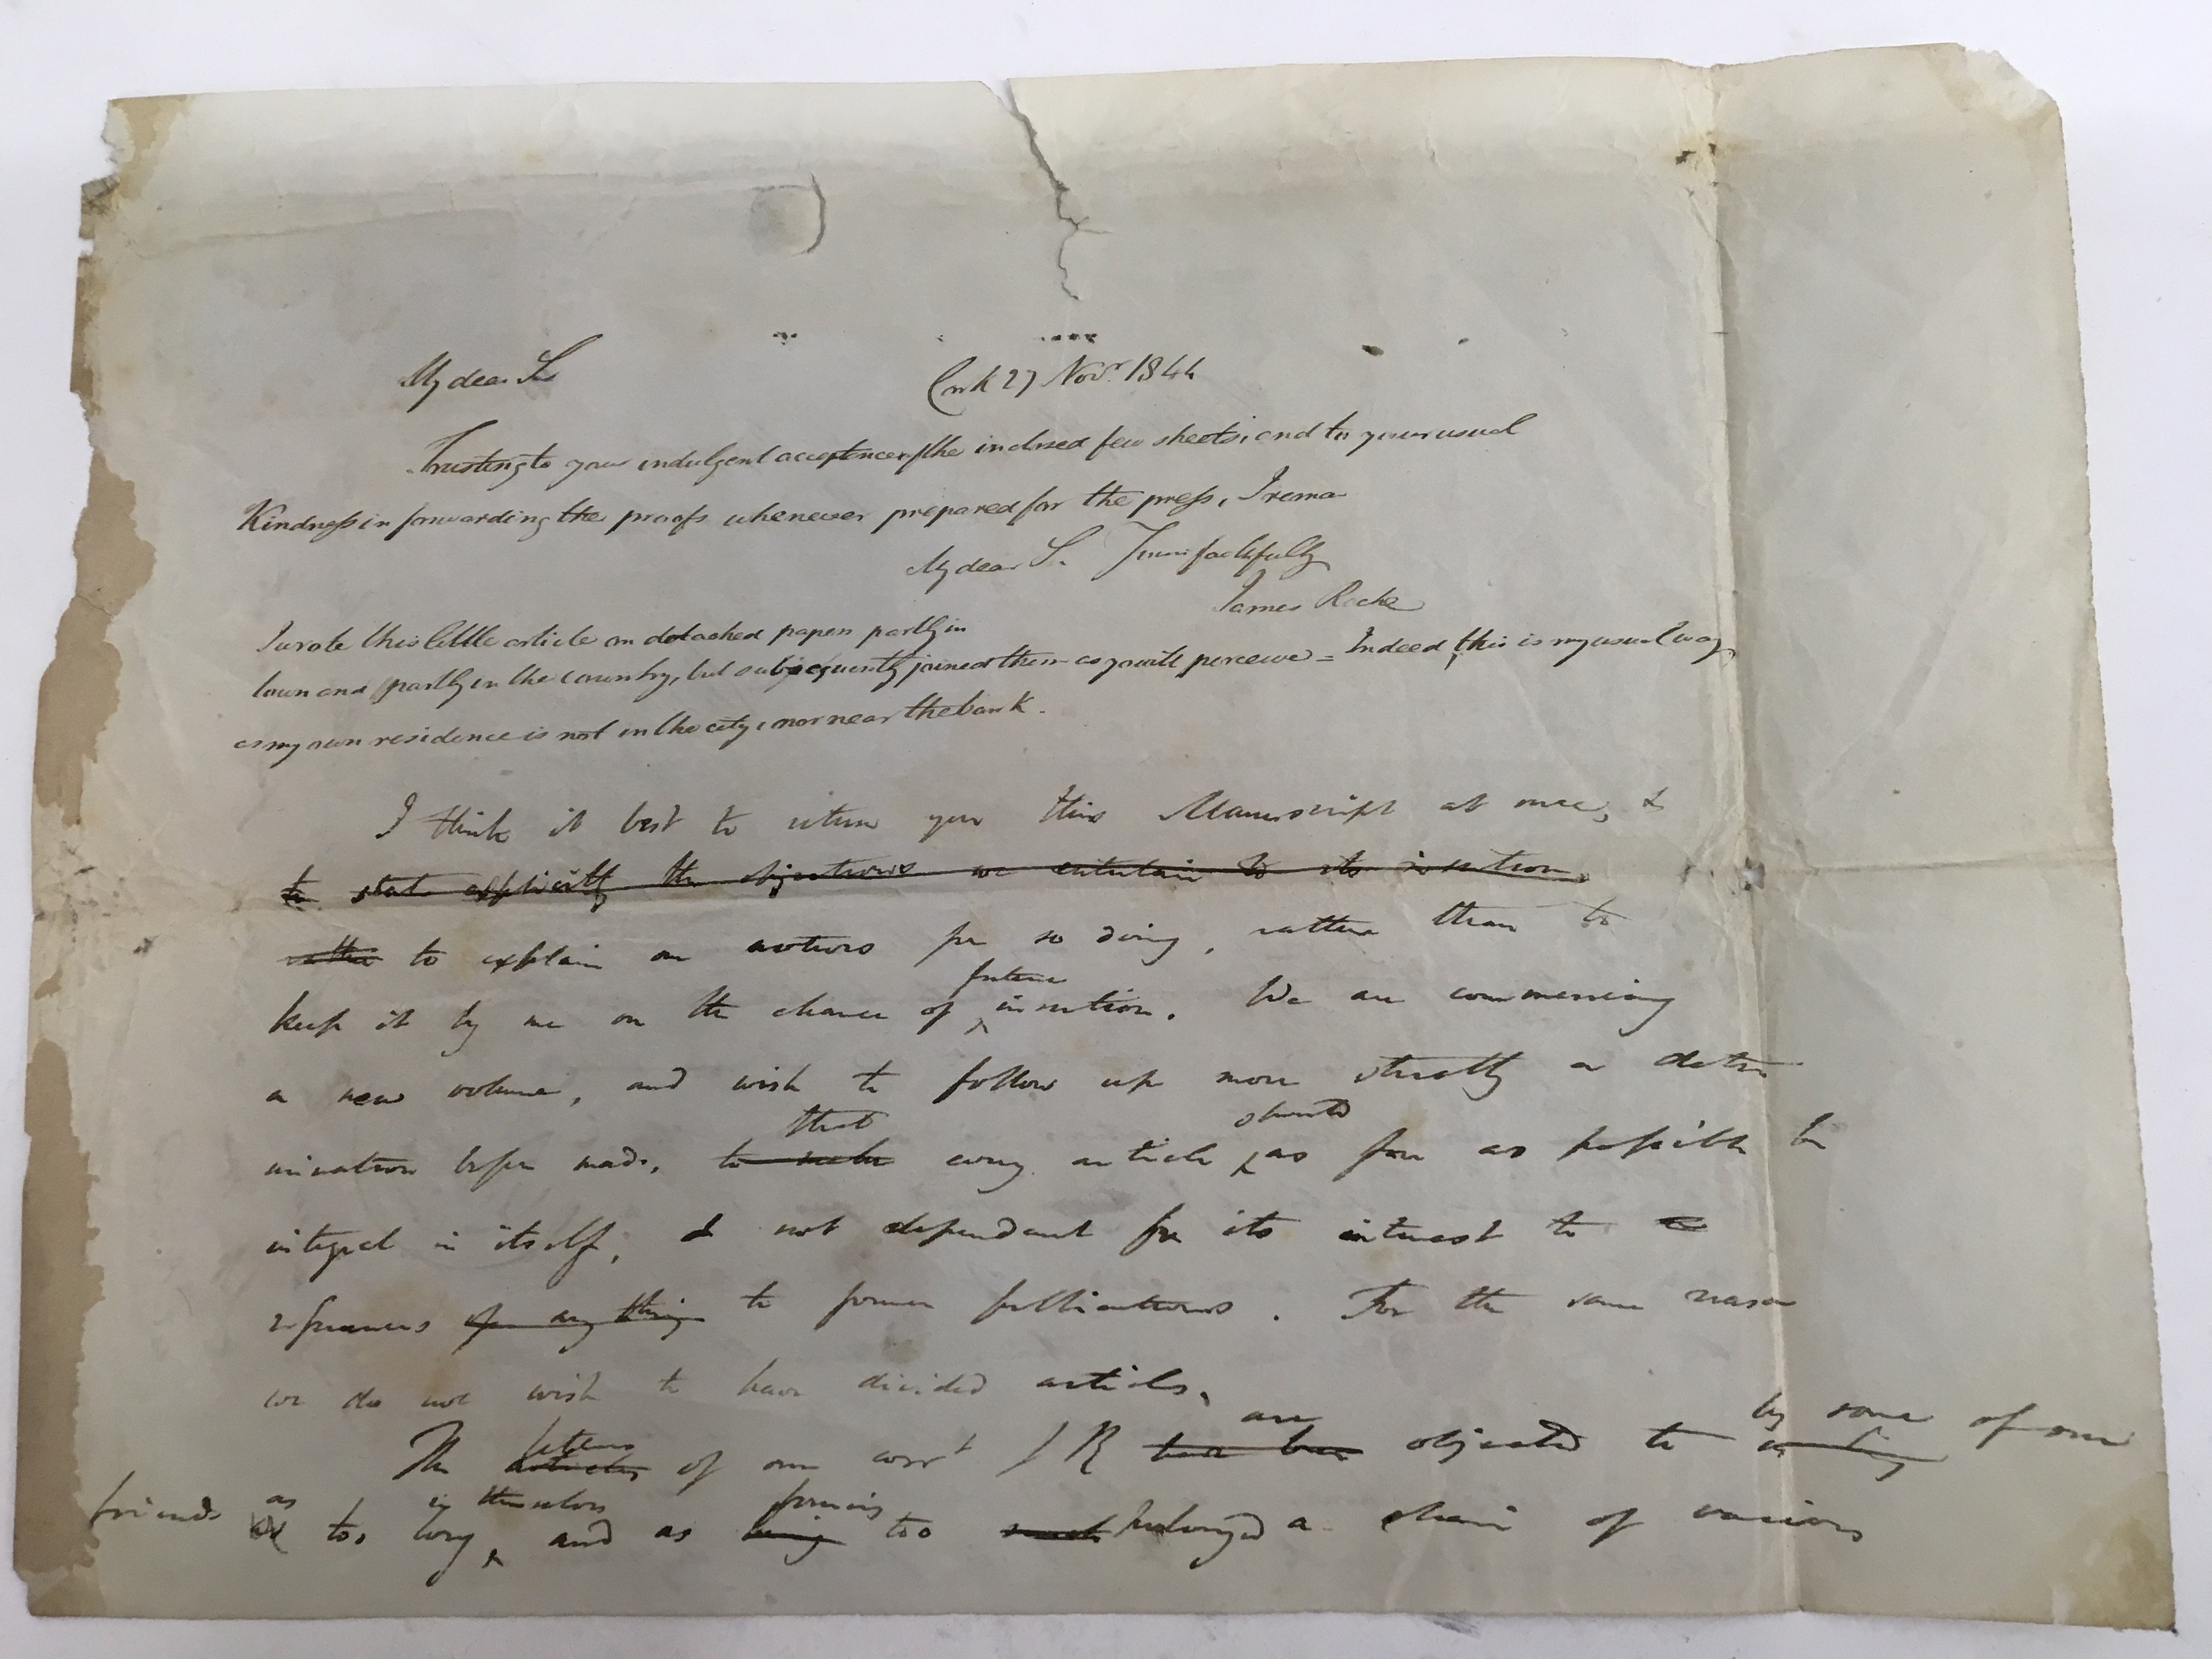 My dear Sir
Cork 27 Novr. 1844
Trusting to your indulgent acceptance of the inclosed few sheets, and to your usual
Kindness in forwarding the proofs whenever prepared for the press, I remain
My dear Sir Yours faithfully
James Roche
I wrote this little article on detached papers partly in
town and partly in the country, but subsequently joined them as you will perceive = Indeed, this is my usual way
as my own residence is not in the city, nor near the bank.
I think it best to return you this Manuscript at once, &
to state explicitly the objections we entertain to its insertion.
rather to explain our motives for so doing, rather than to
future
keep it by me on the chance of insertion. We are commencing
a new volume, and wish to follow up more strictly a deter
that should
mination before made, to make every article as far as possible be
integral in itself, & not dependant for its interest to
references of any thing to former publications. For the same reason
we do not wish to have divided articles.
letters are by some of our
The articles of our corrt J R have been objected to
as in themselves forming
friends too long, and as being too much prolonged a chain of various